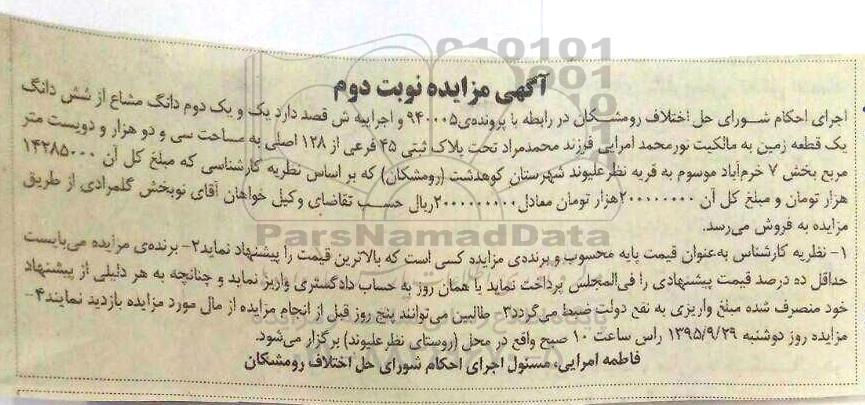 آگهی مزایده نوبت دوم
اجرای احکام شورای حل اختلاف رومشکان در رابطه با پرونده‌ی ۹۴۰۰۰۵ و اجراییه ش قصد دارد یک و یک دوم دانگ مشاع از شش دانگ
یک قطعه زمین به مالکیت نورمحمد امرایی فرزند محمدمراد تحت پلاک ثبتی ۴۵ فرعی از ۱۲۸ اصلی به مساحت سی و دو هزار و دویست متر
مربع بخش ۷ خرم‌آباد موسوم به قریه نظرعلیوند شهرستان کوهدشت (رومشکان) که بر اساس نظریه کارشناسی که مبلغ کل آن ۱۴۲۸۵۰۰۰
هزار تومان و مبلغ کل آن ۲۰۰۰۰۰۰۰۰ هزار تومان معادل ۲۰۰۰۰۰۰۰۰۰ ریال حسب تقاضای وکیل خواهان آقای نوبخش گلمرادی از طریق
مزایده به فروش می‌رسد.
۱- نظریه کارشناس به‌عنوان قیمت پایه محسوب و برنده‌ی مزایده کسی است که بالاترین قیمت را پیشنهاد نماید ۲- برنده‌ی مزایده می‌بایست
حداقل ده درصد قیمت پیشنهادی را فی‌المجلس پرداخت نماید یا همان روز به حساب دادگستری واریز نماید و چنانچه به هر دلیلی از پیشنهاد
خود منصرف شده مبلغ واریزی به نفع دولت ضبط می‌گردد ۳- طالبین می‌توانند پنج روز قبل از انجام مزایده از مال مورد مزایده بازدید نمایند ۴-
مزایده روز دوشنبه ۱۳۹۵/۹/۲۹ راس ساعت ۱۰ صبح واقع در محل (روستای نظرعلیوند) برگزار می‌شود.
فاطمه امرایی، مسئول اجرای احکام شورای حل اختلاف رومشکان
ParsNamadData